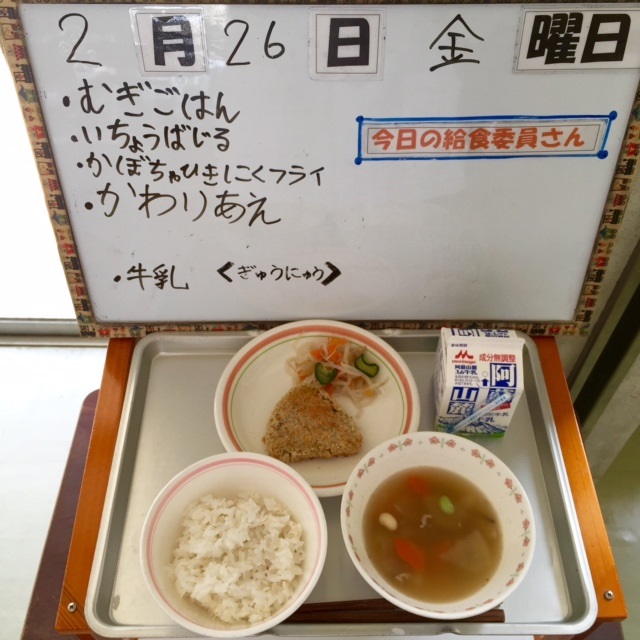 2月26日 金曜日
・むぎごはん
・いちょうばじる
・かぼちゃひきにくフライ
・かわりあえ
今日の給食委員さん
・牛乳 <ぎゅうにゅう>
成分無調整